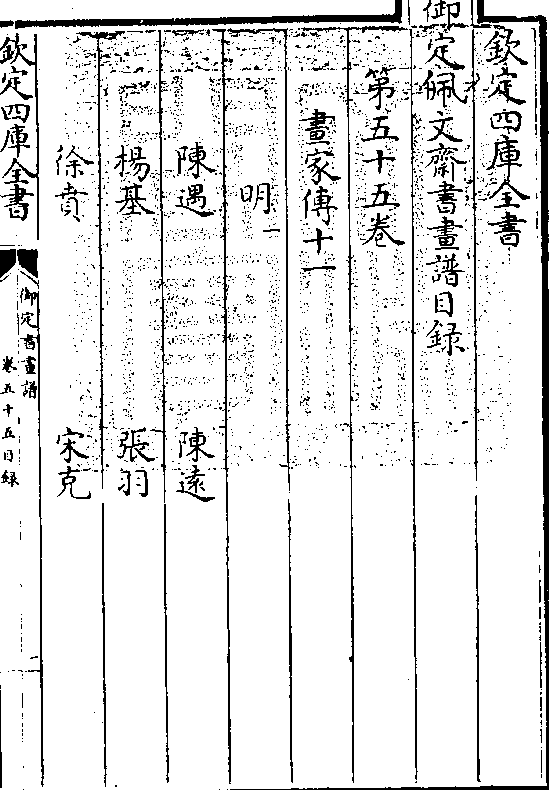 欽定四庫全書
御定佩文齋書畫譜目録
第五十五卷
畫家傳十一
明一
陳遇 陳遠
楊基 張羽
徐賁 宋克
欽定四庫全書
御定書畫譜
卷五十五目録
一